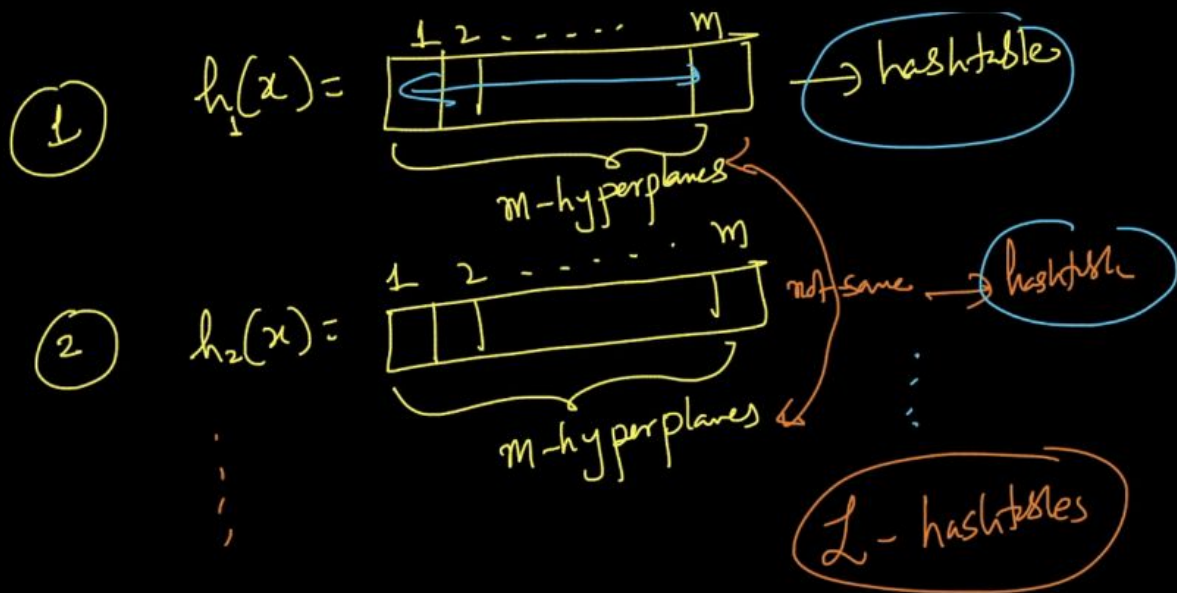 1 2 - - - - - m
1 h₁(x) = → hashtable
m-hyperplanes
1 2 - - - - - m
not same → hashtable
2 h₂(x) =
m-hyperplanes
L - hashtables